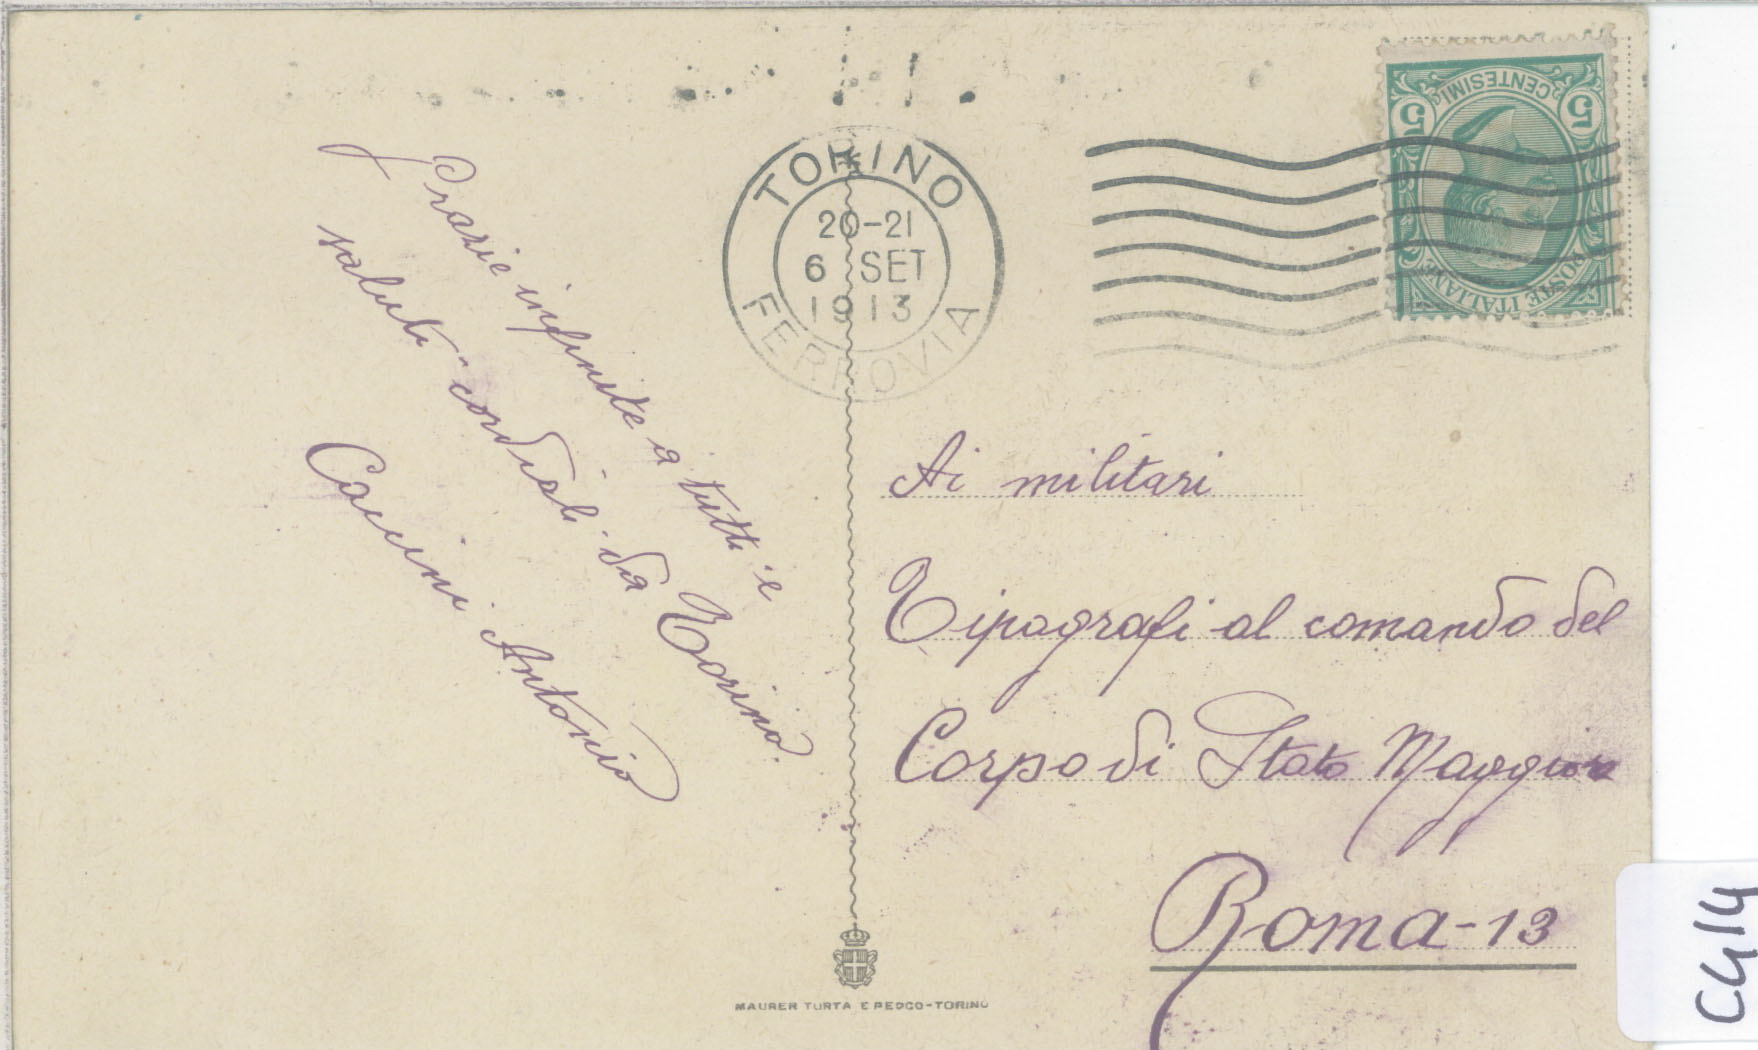 Grazie infinite a tutti e
saluti cordiali da Torino.
Antonio
TORINO
20-21
6 SET
1913
FERROVIA
5 CENTESIMI 5
POSTE ITALIANE
Ai militari
Tipografi al comando del
Corpo di Stato Maggiore
Roma-13
MAURER TURTA E PEOCO-TORINO
CG14